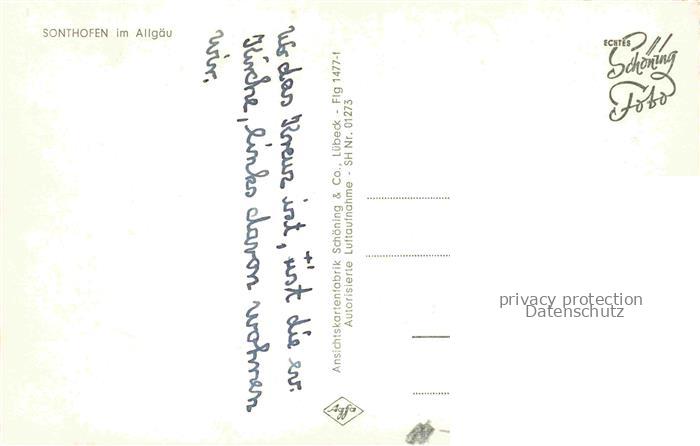 SONTHOFEN im Allgäu
wo das Kreuz ist, + ist die ev.
Kirche, links davon wohnen
wir.
Ansichtskartenfabrik Schöning & Co., Lübeck - Flg 1477-1
Autorisierte Luftaufnahme - SH Nr. 01273
ECHTES
Schöning
Foto
privacy protection
Datenschutz
Agfa